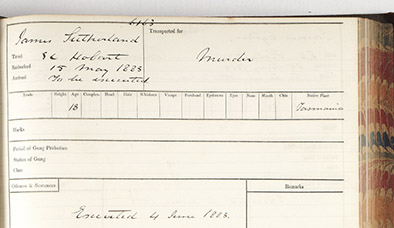 6163
James Sutherland
Transported for
Murder
Tried SC Hobart
Embarked 15 May 1883
Arrived To be executed
Trade Height Age Complex. Head Hair Whiskers Visage Forehead Eyebrows Eyes Nose Mouth Chin Native Place
18 Tasmania
Marks
Period of Gang Probation
Station of Gang
Class
Offences & Sentences Remarks
Executed 4 June 1883.